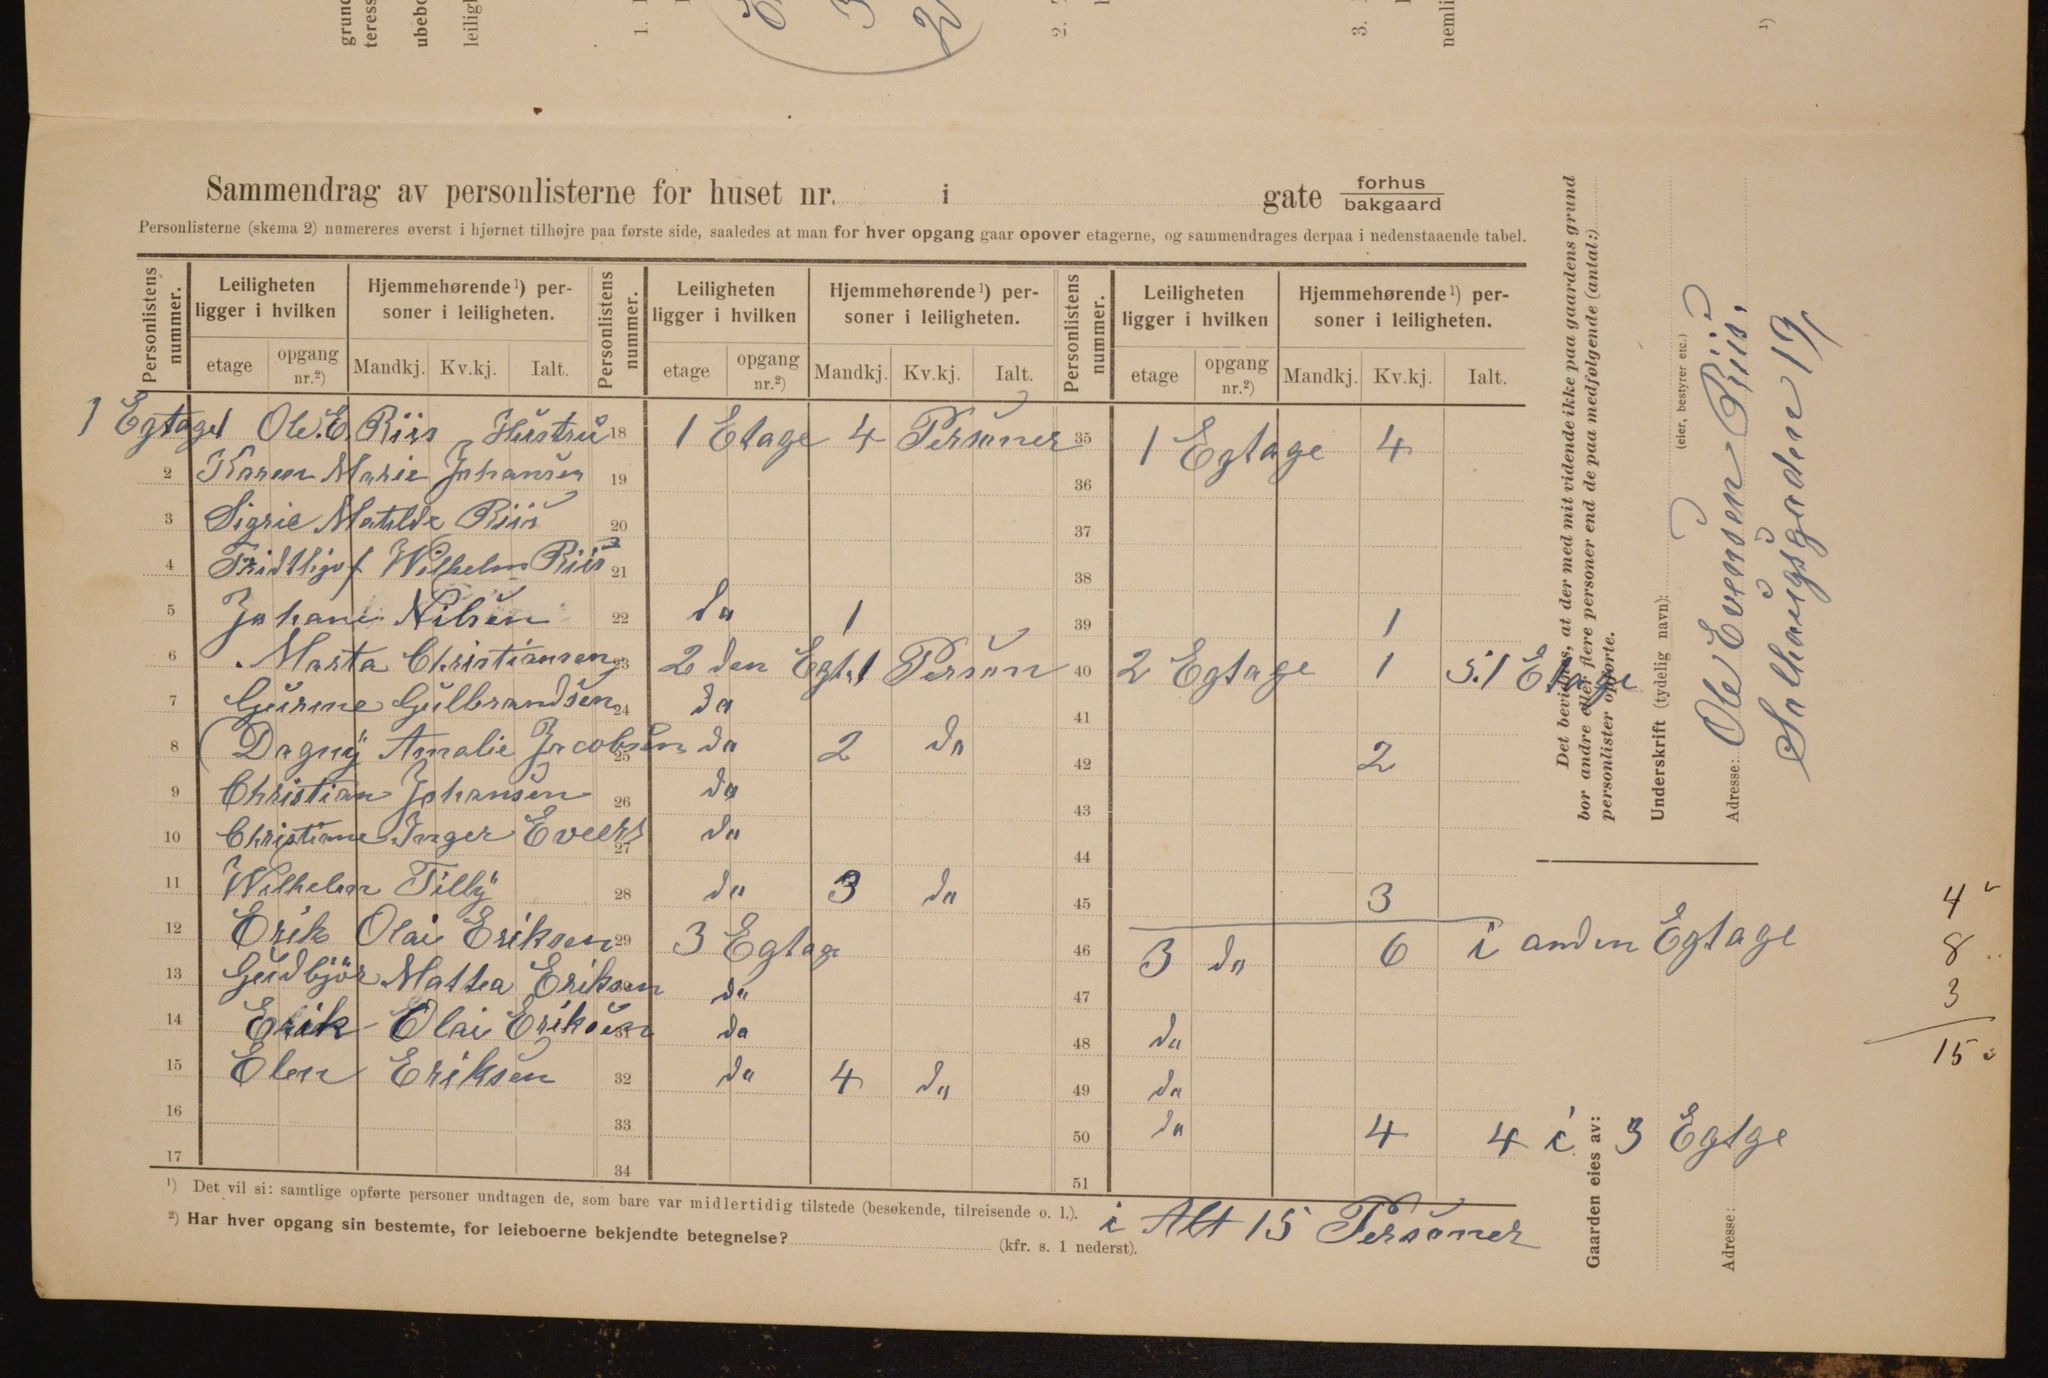 grund
teress
ubebo
leiligh
1.
2.
3.
nemli
1)
Sammendrag av personlisterne for huset nr. i gate forhus bakgaard
Personlisterne (skema 2) numereres øverst i hjørnet tilhøjre paa første side, saaledes at man for hver opgang gaar opover etagerne, og sammendrages derpaa i nedenstaaende tabel.
Personlistens nummer. Leiligheten ligger i hvilken Hjemmehørende 1) personer i leiligheten. Personlistens nummer. Leiligheten ligger i hvilken Hjemmehørende 1) personer i leiligheten. Personlistens nummer. Leiligheten ligger i hvilken Hjemmehørende 1) personer i leiligheten.
etage opgang nr.2) Mandkj. Kv.kj. Ialt. etage opgang nr.2) Mandkj. Kv.kj. Ialt. etage opgang nr.2) Mandkj. Kv.kj. Ialt.
1 Egtage 1 Ole. E. Riis Hustru 18 1 Etage 4 Personer 35 1 Egtage 4
2 Karen Marie Johansen 19 36
3 Sigrie Matilde Riis 20 37
4 Fridthjof Wilhelm Riis 21 38
5 Johane Nilsen 22 da 1 39 1
6 Marta Christiansen 23 2 den Egt. 1 Person 40 2 Egtage 1 5. 1 Etage
7 Gurine Gulbrandsen 24 da 41
8 Dagny Amalie Jacobsen 25 da 2 da 42 2
9 Christian Johansen 26 da 43
10 Christiane Inger Eveers 27 da 44
11 Wilhelm Tilly 28 da 3 da 45 3
12 Erik Olai Eriksen 29 3 Egtage 46 3 da 6 i anden Egtage
13 Gudbjör Mattea Eriksen da 47
14 Erik Olai Eriksen 31 da 48 da
15 Elen Eriksen 32 da 4 da 49 da
16 33 50 da 4 4 i 3 Egtge
17 34 51
1) Det vil si: samtlige opførte personer undtagen de, som bare var midlertidig tilstede (besøkende, tilreisende o. l.).
2) Har hver opgang sin bestemte, for leieboerne bekjendte betegnelse? (kfr. s. 1 nederst).
i Alt 15 Personer
Det bevidnes, at der med mit vidende ikke paa gaardens grund
bor andre eller flere personer end de paa medfølgende (antal:)
personlister opførte.
Underskrift (tydelig navn): (eier, bestyrer etc.)
Ole Evensen Riis,
Adresse: Solhaugsgaden 19
Gaarden eies av:
Adresse:
4
8
3
15